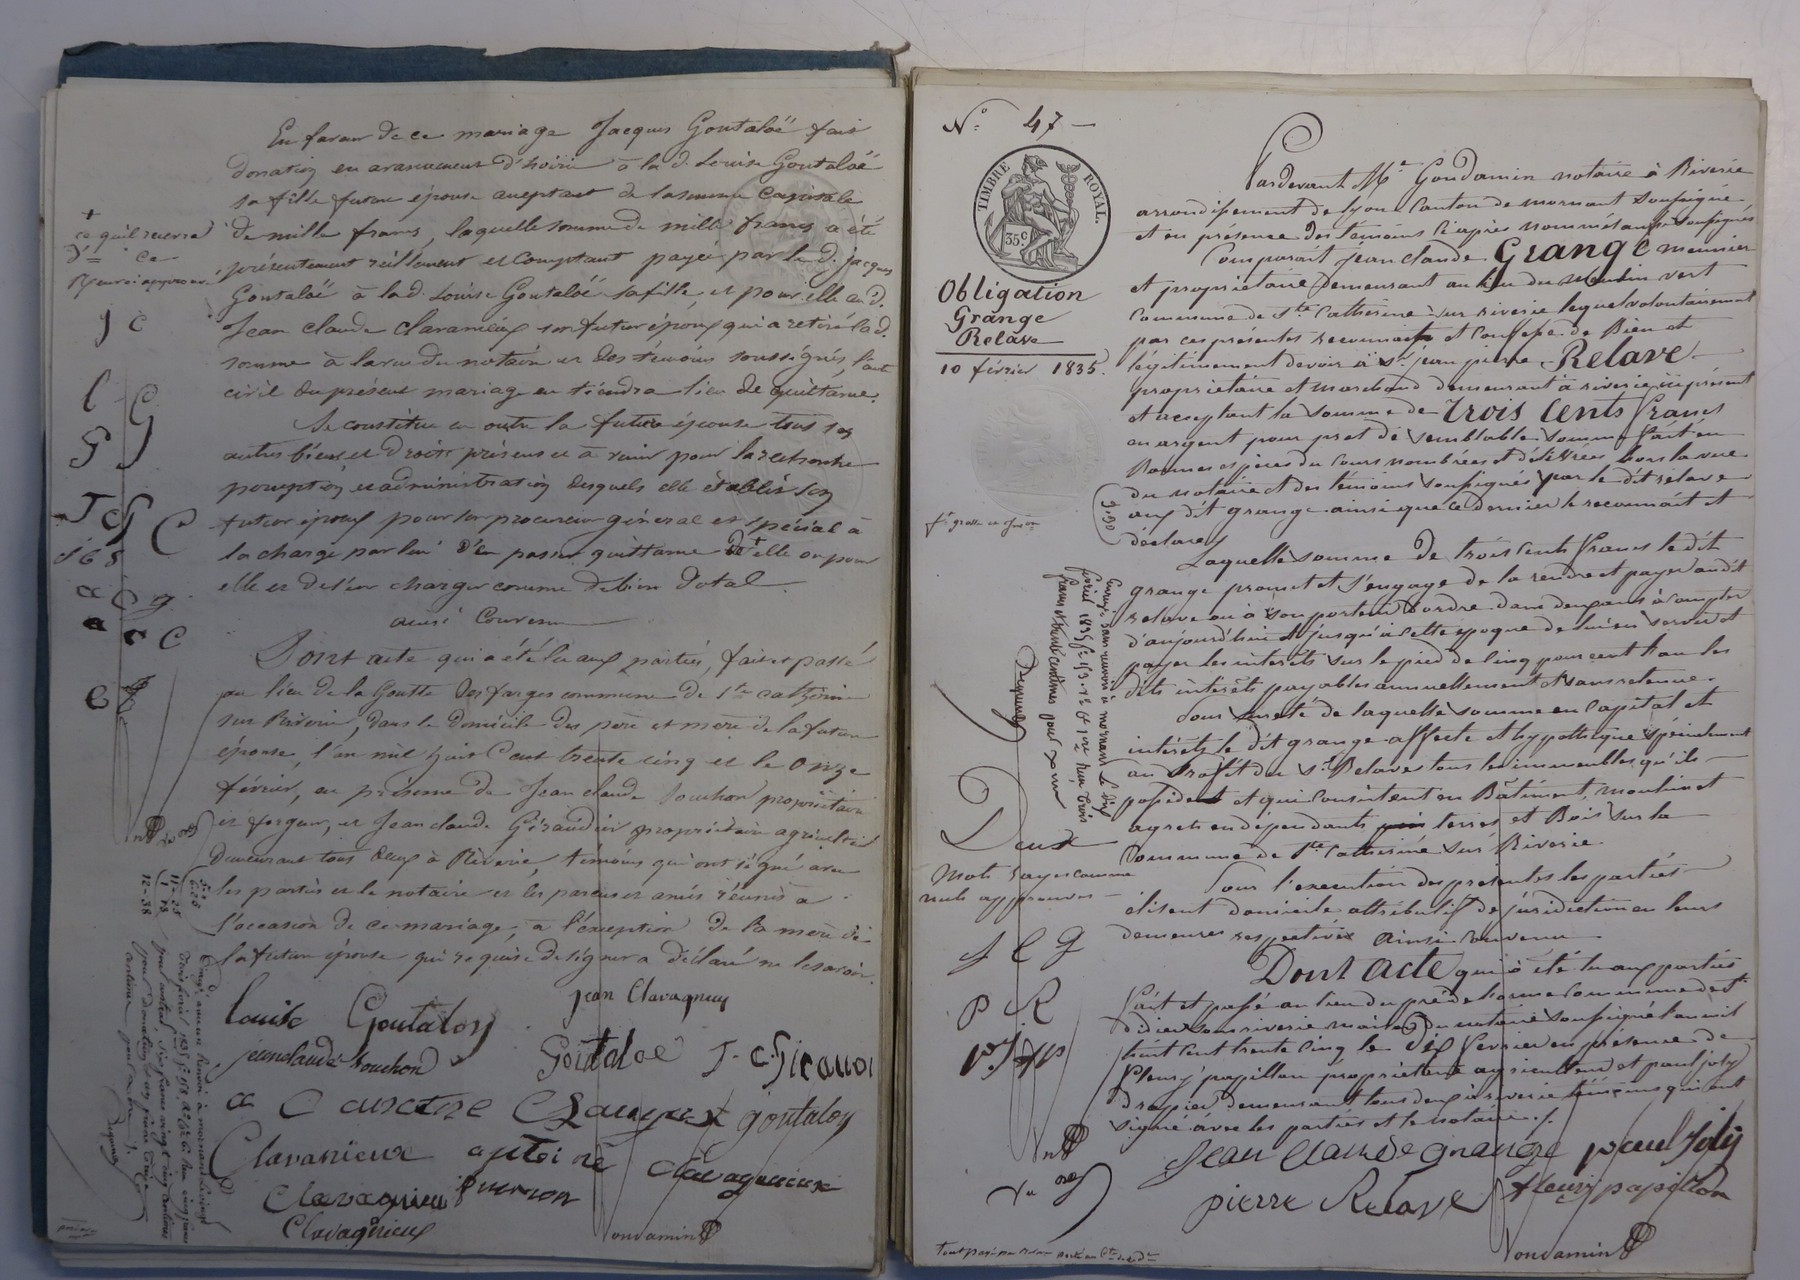 En faveur de ce mariage Jacques Goutaloë fait
donation en avancement d'hoirie à la d. Louise Goutaloë
sa fille future épouse acceptant de la somme capitale
de mille francs, laquelle somme de mille francs a été
présentement réellement et comptant payée par le d. Jacques
Goutaloë à la d. Louise Goutaloë sa fille, et pour elle au d.
Jean Claude Clavanieux son futur époux qui a retiré la d.
somme à la vue du notaire et des témoins soussignés, l'acte
civil du présent mariage en tiendra lieu de quittance.
Se constitue en outre la future épouse tous ses
autres biens et droits présents et à venir pour la recherche
perception et administration desquels elle établit son
futur époux pour son procureur général et spécial à
la charge par lui d'en passer quittance de + elle ou pour
elle et de s'en charger comme de bien dotal.
ainsi Convenu
Dont acte qui a été lu aux parties, fait et passé
au lieu de la Goutte des farges commune de Ste catherine
sur Riverie, dans le domicile des père et mère de la future
épouse, l'an mil huit Cent trente cinq et le Onze
février, en présence de Jean claude Souchon propriétaire
et forgeur, et Jean claude Giraudier propriétaire agriculteur
demeurant tous deux à Riverie, témoins qui ont signé avec
les parties et le notaire et les parens et amis réunis à
l'occasion de ce mariage, à l'exception de la mère de
la future épouse qui requise de signer a déclaré ne le savoir.
+
ce qu'il recevra
J C
l G
G
J C G C
J G S
a C g
a c C
C
5-5
11-25
1-13
12-38
Louise Goutaloy Jean Clavagnieux
jean claude souchon Goutaloe J-C Giraudi
Jacques goutaloy
Clavanieux antoine clavagnieux
Clavagnieu
Clavagnieux
Condamin
N° 47
TIMBRE ROYAL.
35 c
Obligation
Grange
Relave
10 février 1835.
Pardevant Me Condamin notaire à Riverie
arrondissement de Lyon Canton de mornant soussigné
et en présence des témoins ci après nommés aussi soussignés
Comparait Jean Claude Grange meunier
et propriétaire demeurant au lieu du Moulin vert
Commune de Ste Catherine sur riverie lequel volontairement
par ces présentes reconnait et Confesse de Bien et
légitimement devoir à Sr jean pierre Relave
propriétaire et marchand demeurant à riverie ici présent
et acceptant la somme de trois Cents francs
en argent pour pret de semblable somme fait en
Bonnes espèces du Cours nombrées et délivrées hors la vue
du notaire et des témoins soussignés par le dit relave
aux dit grange ainsi que ce dernier le reconnait et
déclare
Laquelle somme de trois Cents francs le dit
grange promet et s'engage de la rendre et payer au dit
relave ou à son porteur d'ordre dans deux ans à compter
d'aujourd'hui et jusqu'à cette époque de lui en servir et
payer les intérêts sur le pied de Cinq pour cent l'an les
dits intérêts payables annuellement et sans retenue.
Pour sureté de laquelle somme en Capital et
intérêts le dit grange affecte et hypothèque spécialement
au Profit du Sr Relave tous les immeubles qu'ils
possèdent et qui Consistent en Bâtiment, moulin et
agrets en dépendants terres et Bois sur la
Commune de Ste Catherine Sur Riverie
Pour l'exécution des présentes les parties
élisent domicile attributif de juridiction en leurs
demeures respectives ainsi Convenu
Dont Acte qui a été lu aux parties
fait et passé au lieu du pré de lorme Commune de St
didier sous riverie notaire soussigné l'an mil
huit Cent trente Cinq le Dix février en présence de
fleury papillon propriétaire agriculteur et paul joly
drapier demeurant tous deux à riverie témoins qui ont
signé avec les parties et le notaire.
(3-30)
Enregistré sans renvoi à mornant le dix
février 1835 fo 153
francs et trente centimes pour xme
Deux
Mots rayés comme
nuls approuvés
J C G
P R
P. J fp
Jean Claude Grange paul Joly
pierre Relave fleury papillon
Condamin